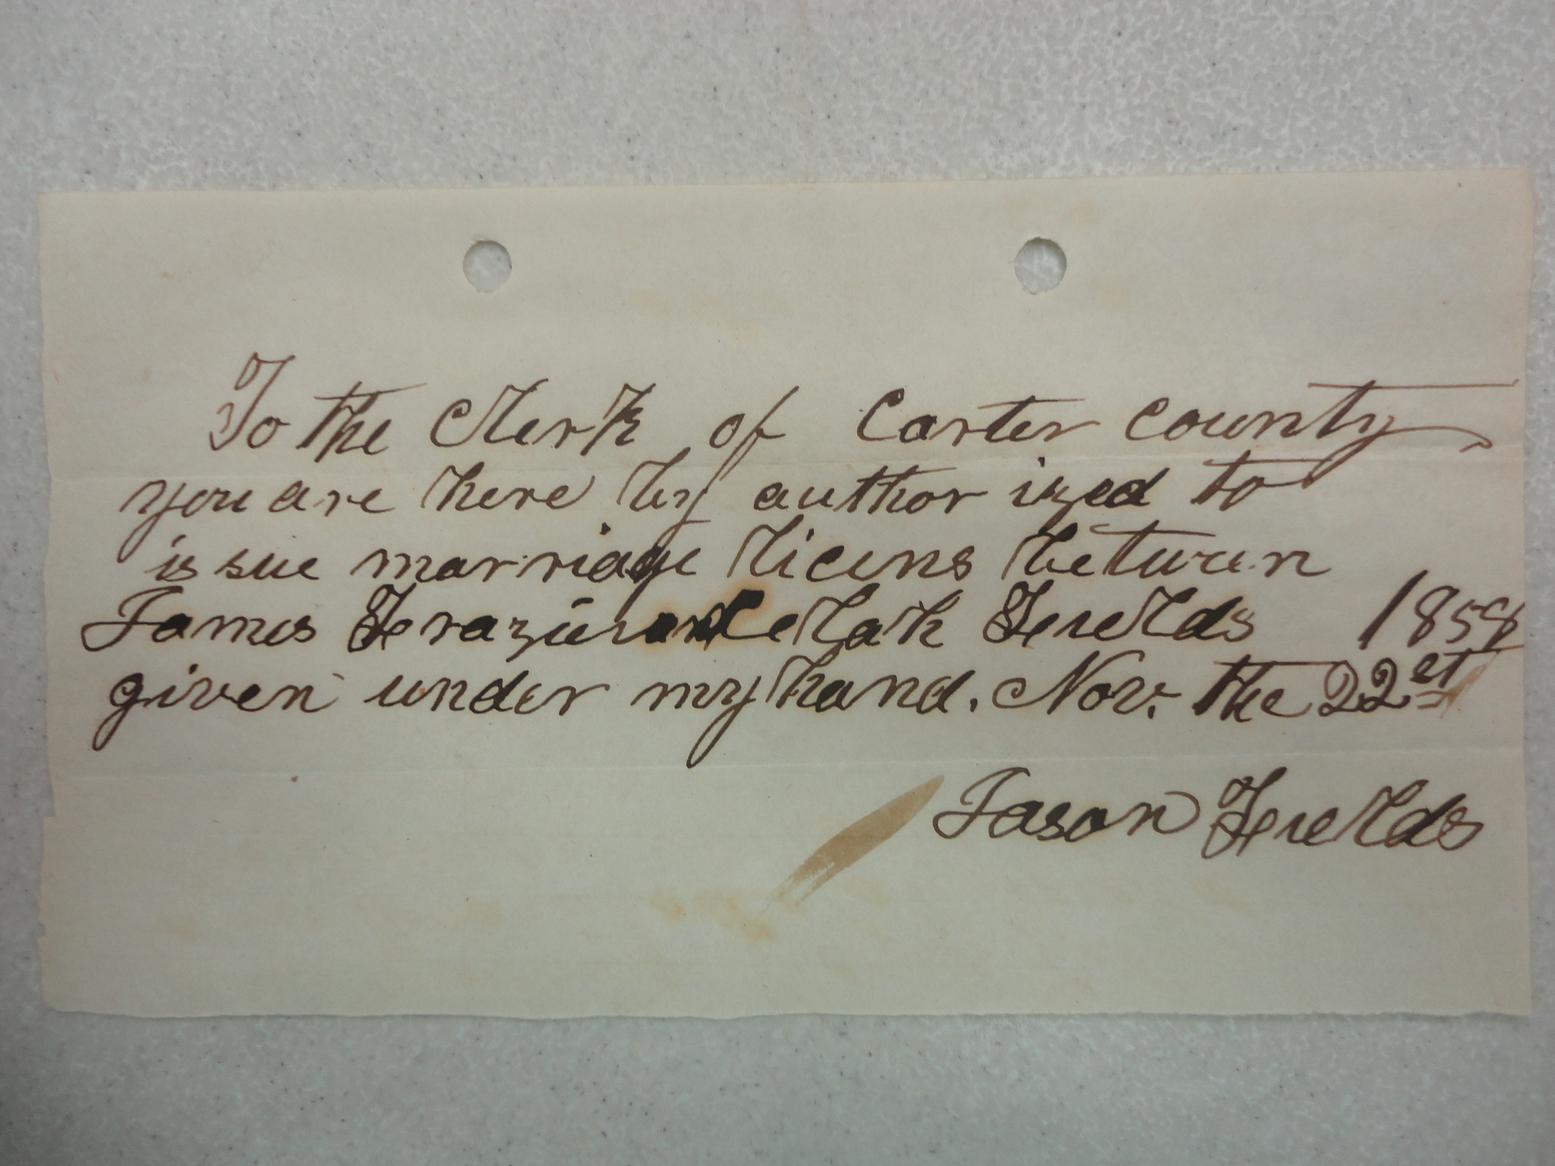 To the Clerk of Carter County
you are here by author ized to
is sue marriage licens between
James Frazier and Fields 1858
given under my hand. Nov. the 22et
Jason Fields